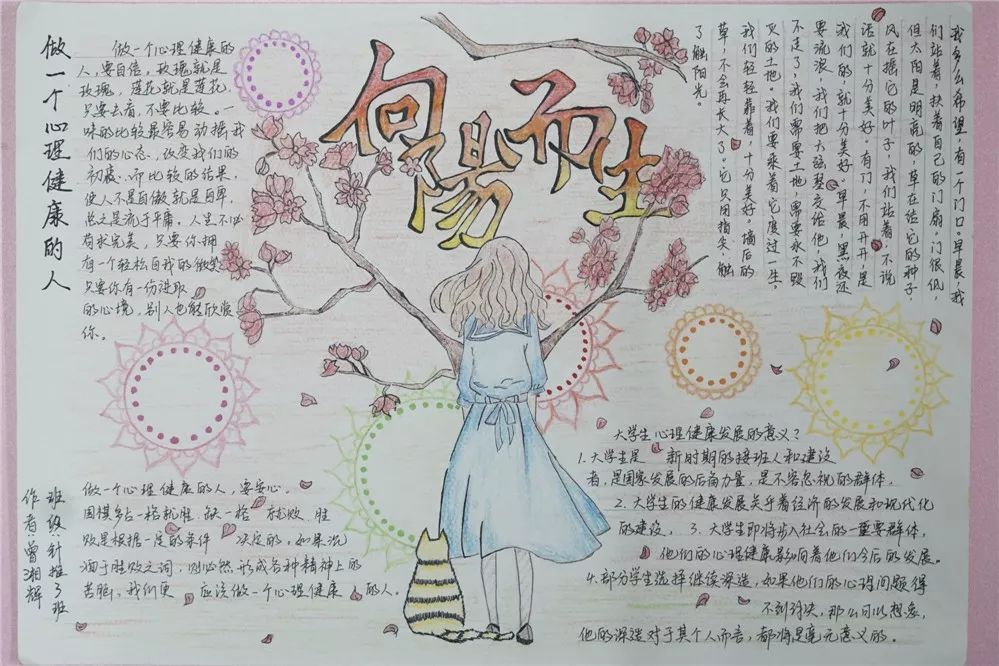 向陽而生
做一个心理健康的人
做一个心理健康的
人,要自信,玫瑰就是
玫瑰,莲花就是莲花,
只要去看,不要比较。一
味的比较最容易动摇我
们的心态,改变我们的
初衷。而比较的结果,
使人不是自傲就是自卑,
总之是流于平庸,人生不必
苛求完美,只要你拥
有一个轻松自我的微笑
只要你有一份进取
的心境,别人也能欣赏
你。
我多么希望,有一个门口。早晨,我
们站着,扶着自己的门扇,门很低,
但太阳是明亮的,草在结它的种子,
风在摇它的叶子,我们站着,不说
话就十分美好。有门,不用开开是
我们的,就十分美好。早晨,黑夜还
要流浪,我们把六弦琴交给他,我们
不走了,我们需要土地,需要永不毁
灭的土地。我们要乘着它度过一生。
我们轻轻靠着,十分美好。墙后的
草,不会再长大了。它只用指尖,触
了触阳光。
做一个心理健康的人,要安心。
围棋多占一格就胜,缺一格就败。胜
败是根据一定的条件决定的,如果沉
湎于胜败之词,则必然形成各种精神上的
苦恼,我们更应该做一个心理健康的人。
班级:针推3班
作者:曾湘辉
大学生心理健康发展的意义?
1.大学生是新时期的接班人和建设
者,是国家发展的后备力量,是不容忽视的群体,
2.大学生的健康发展关乎着经济的发展和现代化
的建设,3、大学生即将步入社会的一重要群体,
他们的心理健康影响着他们今后的发展。
4.部分学生选择继续深造,如果他们的心理问题得
不到解决,那么可以想象,
他的深造对于其个人而言,都将是毫无意义的。